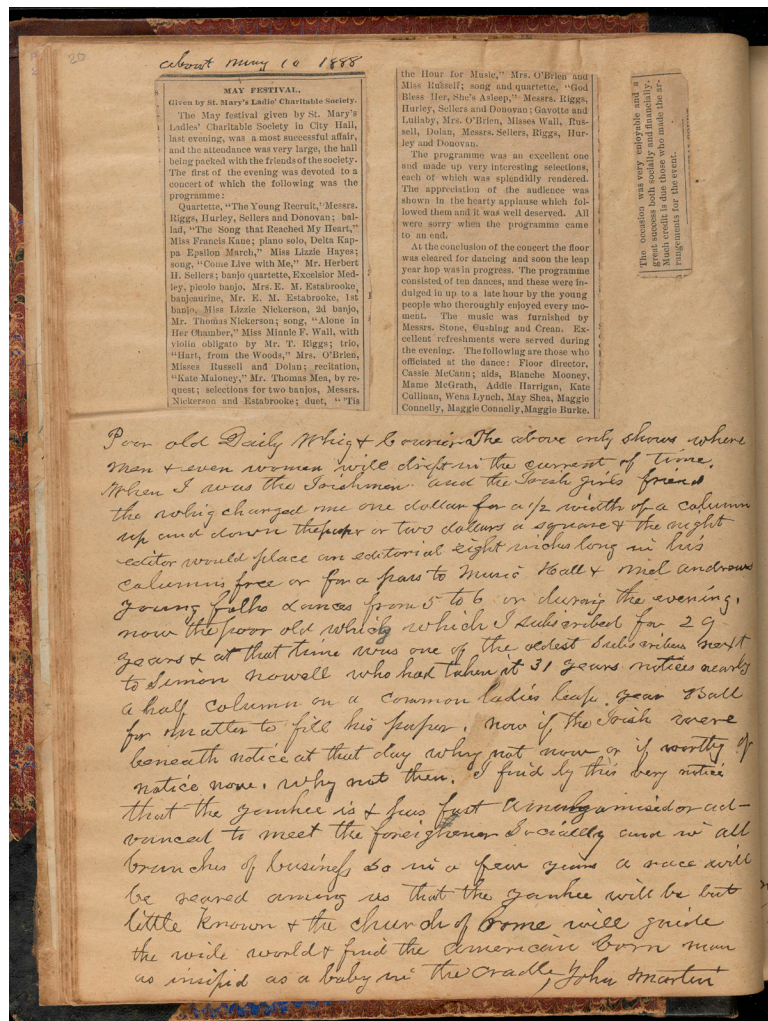 20
about May 10 1888
MAY FESTIVAL,
Given by St. Mary's Ladie' Charitable Society.
The May festival given by St. Mary's
Ladies' Charitable Society in City Hall,
last evening, was a most successful affair,
and the attendance was very large, the hall
being packed with the friends of the society.
The first of the evening was devoted to a
concert of which the following was the
programme:
Quartette, "The Young Recruit," Messrs.
Riggs, Hurley, Sellers and Donovan; bal-
lad, "The Song that Reached My Heart,"
Miss Francis Kane; piano solo, Delta Kap-
pa Epsilon March," Miss Lizzie Hayes;
song, "Come Live with Me," Mr. Herbert
H. Sellers; banjo quartette, Excelsior Med-
ley, picolo banjo, Mrs. E. M. Estabrooke,
banjeaurine, Mr. E. M. Estabrooke, 1st
banjo, Miss Lizzie Nickerson, 2d banjo,
Mr. Thomas Nickerson; song, "Alone in
Her Chamber," Miss Minnie F. Wall, with
violin obligato by Mr. T. Riggs; trio,
"Hart, from the Woods," Mrs. O'Brien,
Misses Russell and Dolan; recitation,
"Kate Maloney," Mr. Thomas Mea, by re-
quest; selections for two banjos, Messrs.
Nickerson and Estabrooke; duet, "'Tis
the Hour for Music," Mrs. O'Brien and
Miss Russell; song and quartette, "God
Bless Her, She's Asleep," Messrs. Riggs,
Hurley, Sellers and Donovan; Gavotte and
Lullaby, Mrs. O'Brien, Misses Wall, Rus-
sell, Dolan, Messrs. Sellers, Riggs, Hur-
ley and Donovan.
The programme was an excellent one
and made up very interesting selections,
each of which was splendidly rendered.
The appreciation of the audience was
shown in the hearty applause which fol-
lowed them and it was well deserved. All
were sorry when the programme came
to an end.
At the conclusion of the concert the floor
was cleared for dancing and soon the leap
year hop was in progress. The programme
consisted of ten dances, and these were in-
dulged in up to a late hour by the young
people who thoroughly enjoyed every mo-
ment. The music was furnished by
Messrs. Stone, Cushing and Crean. Ex-
cellent refreshments were served during
the evening. The following are those who
officiated at the dance: Floor director,
Cassie McCann; aids, Blanche Mooney,
Mame McGrath, Addie Harrigan, Kate
Cullinan, Wena Lynch, May Shea, Maggie
Connelly, Maggie Connelly, Maggie Burke.
The occasion was very enjoyable and a
great success both socially and financially.
Much credit is due those who made the ar-
rangements for the event.
Poor old Daily Whig & Courier The above only shows where
men & even women will drift in the current of time.
When I was the Irishmen and the Irish girls friend
the whig charged me one dollar for a 1/2 width of a column
up and down the paper or two dollars a square & the night
editor would place an editorial eight inches long in his
columns free or for a pass to Music Hall & Mel andrews
young folks dances from 5 to 6 or during the evening.
now the poor old whig which I subscribed for 29
years & at that time was one of the oldest subscribers next
to Simon Nowell who had taken it 31 years notices nearly
a half column on a common ladies leap year Ball
for matter to fill his paper. now if the Irish were
beneath notice at that day why not now or if worthy of
notice now. why not then. I find by this very notice
that the yankee is & has fast amalgamised or ad-
vanced to meet the foreighener Socially and in all
branches of business so in a few years a race will
be reared among us that the yankee will be but
little known & the church of Rome will guide
the wide world & find the american born man
as insipid as a baby in the cradle, John Martin